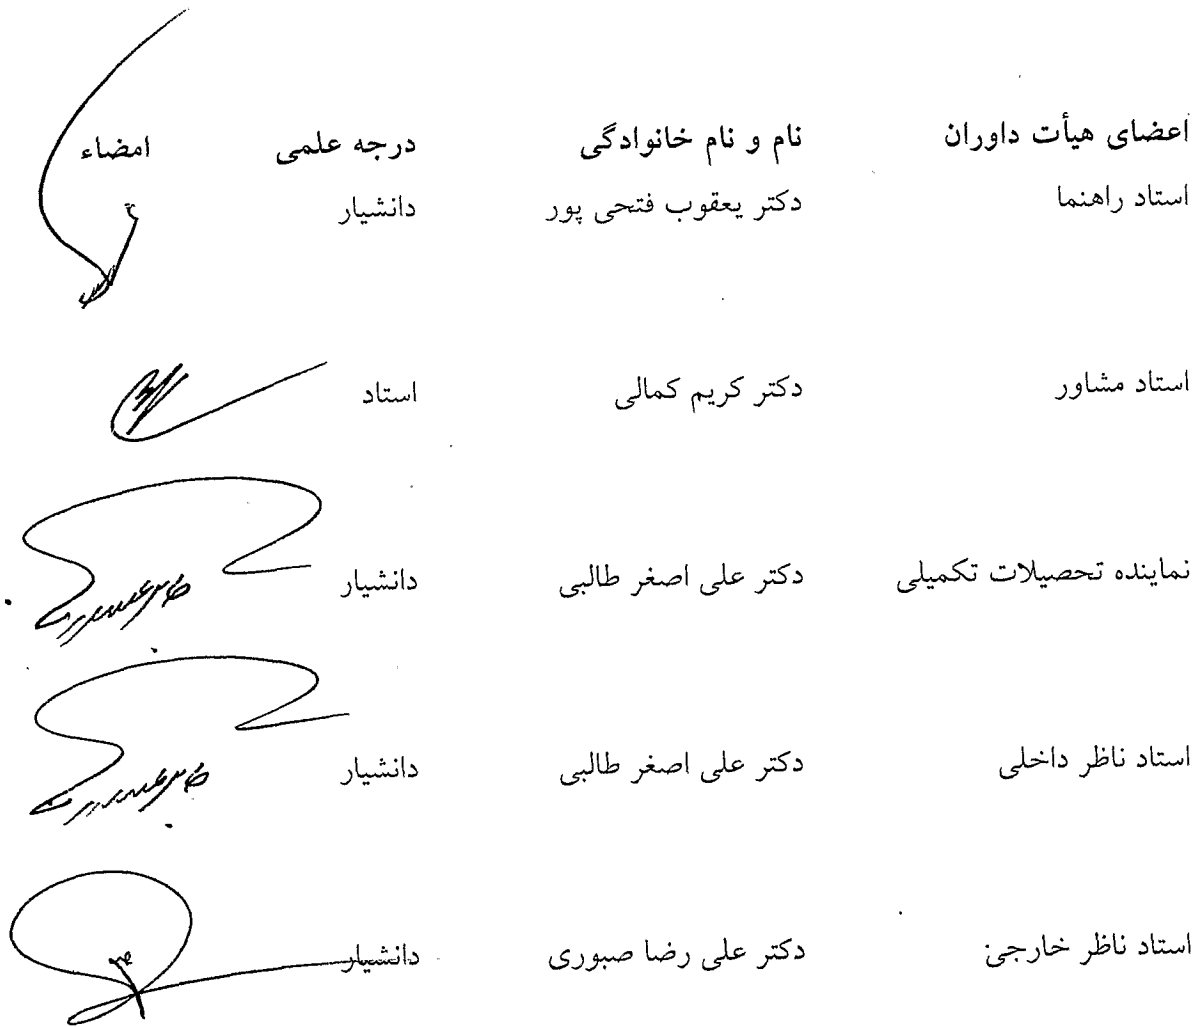 اعضای هیأت داوران نام و نام خانوادگی درجه علمی امضاء
استاد راهنما دکتر یعقوب فتحی پور دانشیار
استاد مشاور دکتر کریم کمالی استاد
نماینده تحصیلات تکمیلی دکتر علی اصغر طالبی دانشیار
استاد ناظر داخلی دکتر علی اصغر طالبی دانشیار
استاد ناظر خارجی دکتر علی رضا صبوری دانشیار